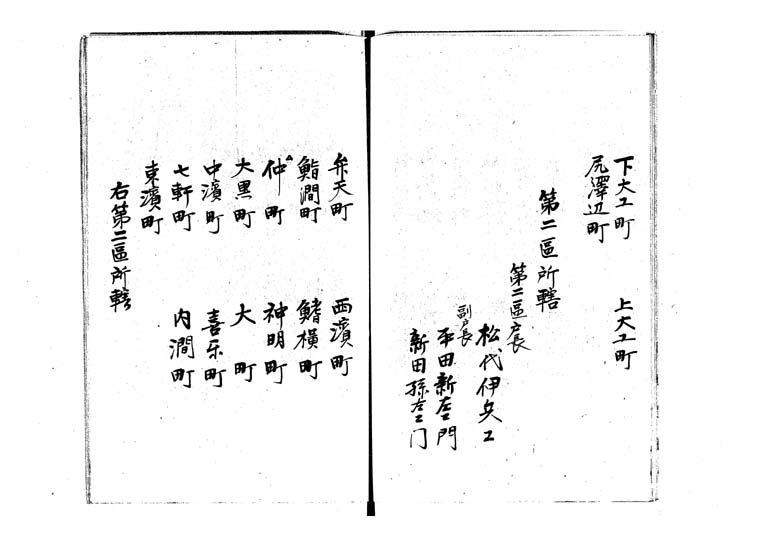 下大工町　上大工町
尻澤辺町
第二區所轄
第二區戸長
松代伊兵エ
副戸長
平田新左エ門
新田孫左エ门
弁天町　西濱町
鮨澗町　鰭横町
仲町　神明町
大黒町　大町
中濱町　喜乐町
七軒町　内澗町
東濱町
右第二區所轄